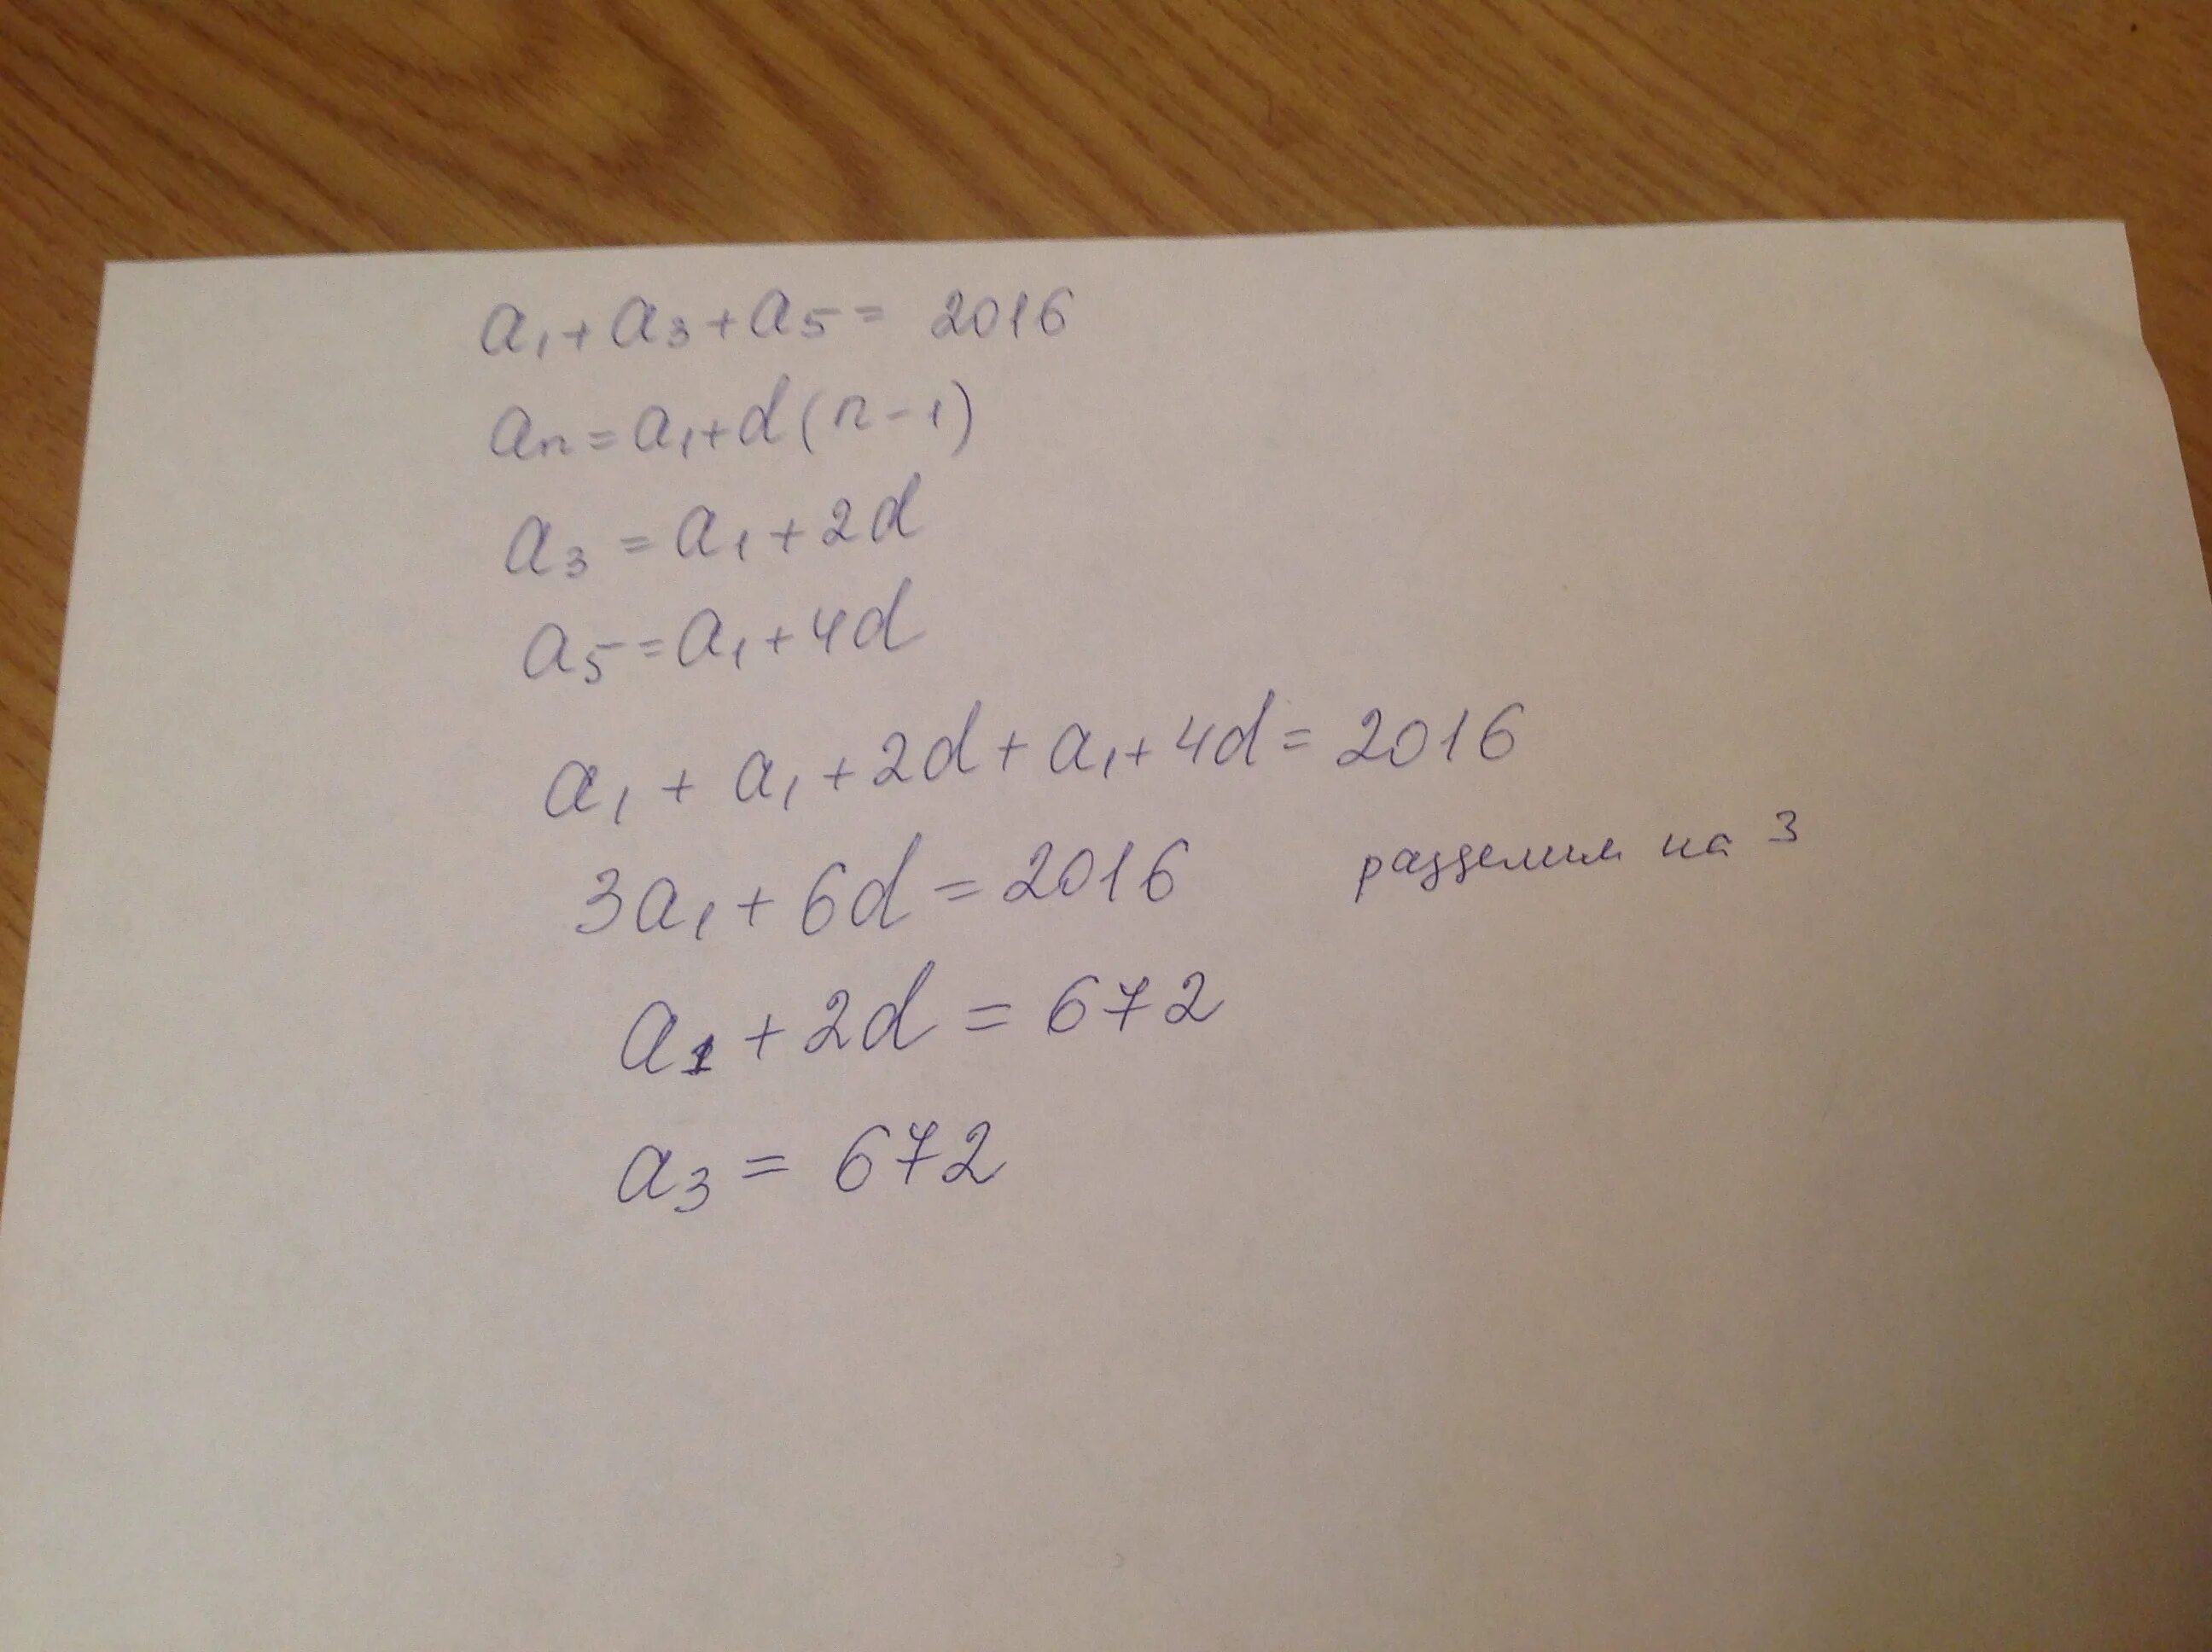 a₁ + a₃ + a₅ = 2016
aₙ = a₁ + d(n - 1)
a₃ = a₁ + 2d
a₅ = a₁ + 4d
a₁ + a₁ + 2d + a₁ + 4d = 2016
3a₁ + 6d = 2016 разделим на 3
a₁ + 2d = 672
a₃ = 672